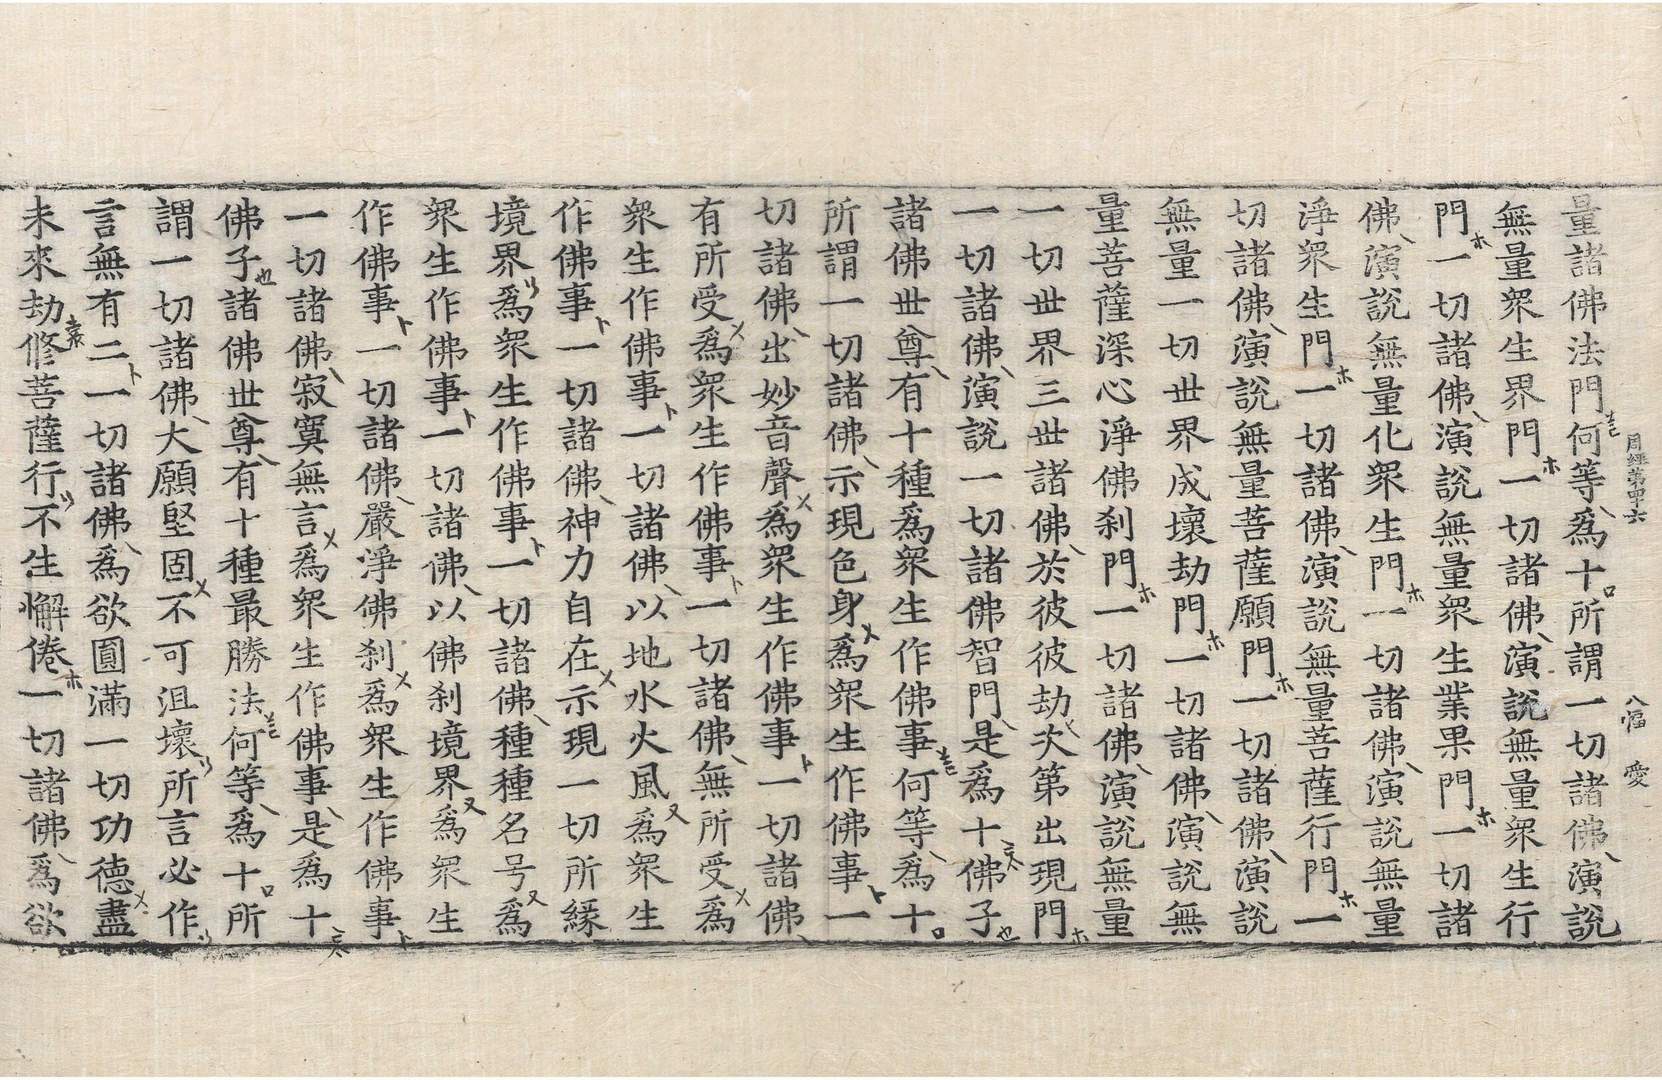 周經第四十六　八幅　愛
量諸佛法門何等爲十所謂一切諸佛演說
無量衆生界門一切諸佛演說無量衆生行
門一切諸佛演說無量衆生業果門一切諸
佛演說無量化衆生門一切諸佛演說無量
淨衆生門一切諸佛演說無量菩薩行門一
切諸佛演說無量菩薩願門一切諸佛演說
無量一切世界成壞劫門一切諸佛演說無
量菩薩深心淨佛刹門一切諸佛演說無量
一切世界三世諸佛於彼彼劫次第出現門
一切諸佛演說一切諸佛智門是爲十佛子
諸佛世尊有十種爲衆生作佛事何等爲十
所謂一切諸佛示現色身爲衆生作佛事一
切諸佛出妙音聲爲衆生作佛事一切諸佛
有所受爲衆生作佛事一切諸佛無所受爲
衆生作佛事一切諸佛以地水火風爲衆生
作佛事一切諸佛神力自在示現一切所緣
境界爲衆生作佛事一切諸佛種種名号爲
衆生作佛事一切諸佛以佛刹境界爲衆生
作佛事一切諸佛嚴淨佛刹爲衆生作佛事
一切諸佛寂寞無言爲衆生作佛事是爲十
佛子諸佛世尊有十種最勝法何等爲十所
謂一切諸佛大願堅固不可沮壞所言必作
言無有二一切諸佛爲欲圓滿一切功德盡
未來劫修菩薩行不生懈倦一切諸佛爲欲